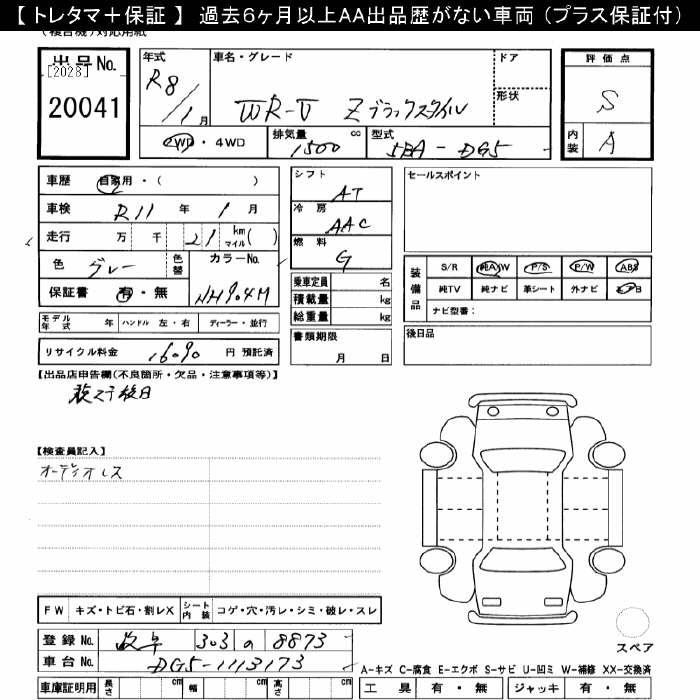 【 トレタマ＋保証 】 過去6ヶ月以上AA出品歴がない車両 (プラス保証付)
(複合機)対応用紙
出品No.
[2028]
20041
年式
R8/1月
車名・グレード
WR-V Zブラックスタイル
ドア
形状
2WD・4WD
排気量
1500 cc
型式
5BA-DG5
評価点
S
内装
A
車歴 自家用・( )
車検 R11 年 1 月
走行 万 千 21 km マイル( )
色 グレー 色替 カラーNo.
保証書 有・無 NH904M
モデル年式 年 ハンドル 左・右 ディーラー・並行
リサイクル料金 16090 円 預託済
シフト
AT
冷房
AAC
燃料
G
乗車定員 名
積載量 kg
総重量 kg
書類期限
月 日
セールスポイント
装備品
S/R 純AW P/S P/W ABS
純TV 純ナビ 革シート 外ナビ エアB
ナビ型番:
後日品
【出品店申告欄(不良箇所・欠品・注意事項等)】
後日
【検査員記入】
オーディオレス
FW キズ・トビ石・割レX シート内装 コゲ・穴・汚レ・シミ・破レ・スレ
登録No. 303 の 8873
車台No. DG5-1113173
車庫証明用 長さ cm 幅 cm 高さ cm
スペア
A-キズ C-腐食 E-エクボ S-サビ U-凹ミ W-補修 XX-交換済
工具 有・無 ジャッキ 有・無